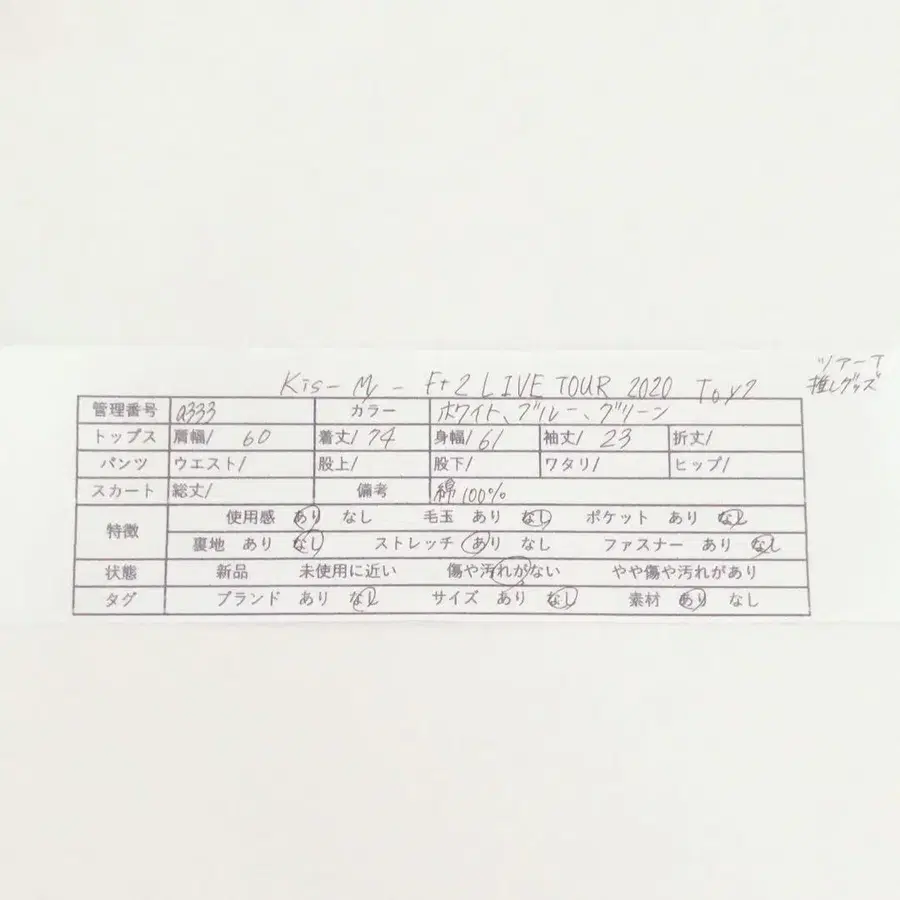 ツアーT
Kis-My-Ft2 LIVE TOUR 2020 Toy2
推しグッズ
管理番号 a333 カラー ホワイト、ブルー、グリーン
トップス 肩幅/ 60 着丈/ 74 身幅/ 61 袖丈/ 23 裄丈/
パンツ ウエスト/ 股上/ 股下/ ワタリ/ ヒップ/
スカート 総丈/ 備考 綿100%
特徴 使用感 あり なし 毛玉 あり なし ポケット あり なし
裏地 あり なし ストレッチ あり なし ファスナー あり なし
状態 新品 未使用に近い 傷や汚れがない やや傷や汚れがあり
タグ ブランド あり なし サイズ あり なし 素材 あり なし